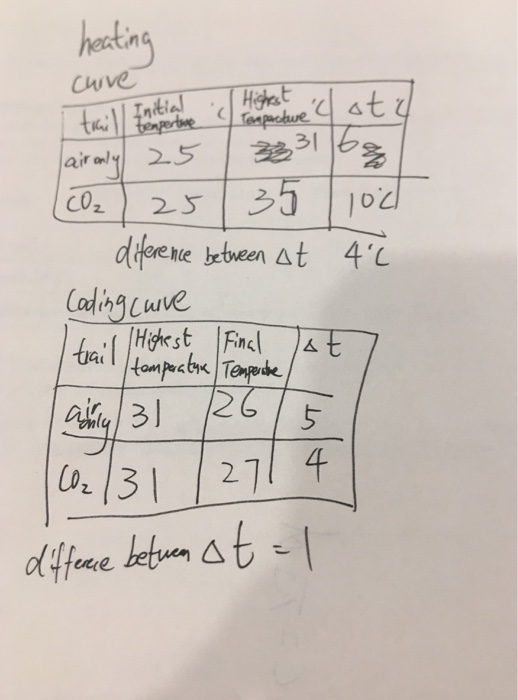 heating
curve
trail Initial tempertme °C Highest Tempaecture °C Δt °C
air only 25 31 6
CO₂ 25 35 10°C
diference between Δt 4°C
Coding curve
trail Highest tomperature Final Temperdne Δt
air only 31 26 5
CO₂ 31 27 4
differece betwen Δt = 1